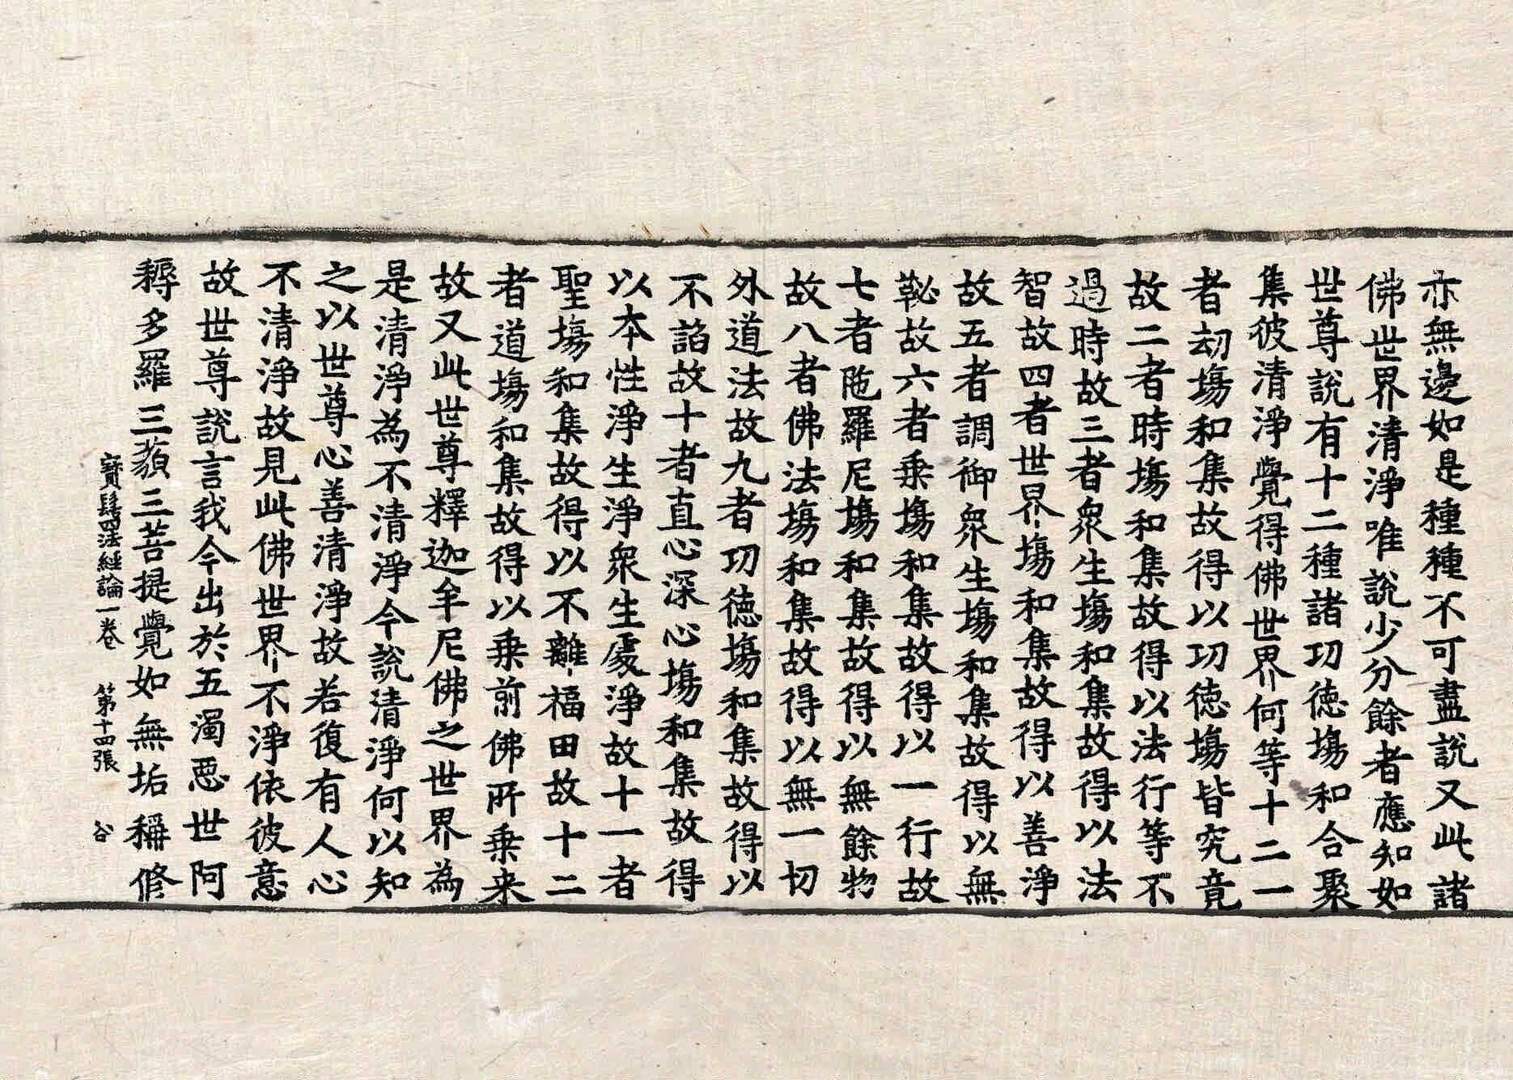 亦無邊如是種種不可盡說又此諸
佛世界清淨唯說少分餘者應知如
世尊說有十二種諸功徳塲和合聚
集彼清淨覺得佛世界何等十二一
者刧塲和集故得以功徳塲皆究竟
故二者時塲和集故得以法行等不
過時故三者衆生塲和集故得以法
智故四者世界塲和集故得以善淨
故五者調御衆生塲和集故得以無
毖故六者乘塲和集故得以一行故
七者陁羅尼塲和集故得以無餘物
故八者佛法塲和集故得以無一切
外道法故九者功徳塲和集故得以
不諂故十者直心深心塲和集故得
以本性淨生淨衆生處淨故十一者
聖塲和集故得以不離福田故十二
者道塲和集故得以乘前佛所乘来
故又此世尊釋迦牟尼佛之世界為
是清淨為不清淨今說清淨何以知
之以世尊心善清淨故若復有人心
不清淨故見此佛世界不淨依彼意
故世尊說言我今出於五濁惡世阿
耨多羅三藐三菩提覺如無垢稱修
寶髻四法經論一卷 第十四張 谷